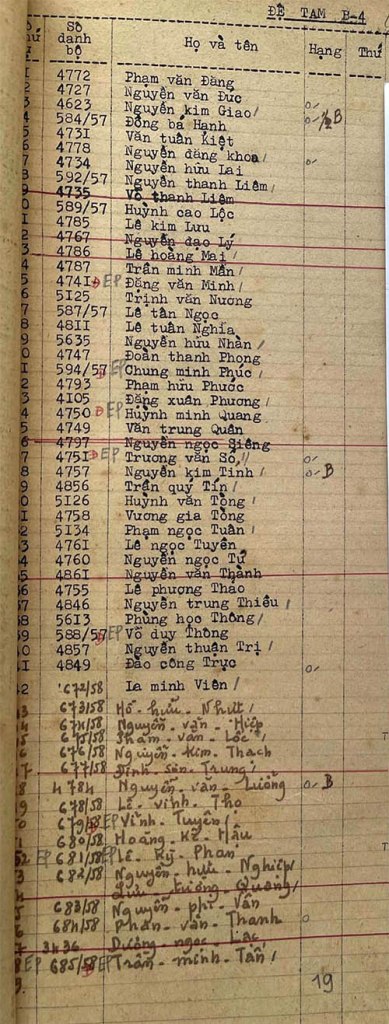 ĐỆ TAM B-4
Số danh bộ Họ và tên Hạng Thứ
4772 Phạm văn Đăng
4727 Nguyễn văn Đức
4623 Nguyễn kim Giao /
584/57 Đồng bá Hạnh B
4731 Văn tuấn Kiệt
4778 Nguyễn đăng khoa /
4734 Nguyễn hữu Lai
592/57 Nguyễn thanh Liêm /
4735 Võ thanh Liêm
589/57 Huỳnh cao Lộc
4785 Lê kim Lưu
4767 Nguyễn đạo Lý
4786 Lê hoàng Mai /
4787 Trần minh Mẫn /
4741 EP Đặng văn Minh /
5125 Trịnh văn Nương
587/57 Lê tấn Ngọc
4811 Lê tuấn Nghĩa
5635 Nguyễn hữu Nhàn /
4747 Đoàn thanh Phong
594/57 EP Chung minh Phúc /
4793 Phạm hữu Phước
4105 Đặng xuân Phương /
4750 EP Huỳnh minh Quang
4749 Văn trung Quân
4797 Nguyễn ngọc Siêng
4751 EP Trương văn Số //
4757 Nguyễn kim Tinh / B
4856 Trần quý Tín /
5126 Huỳnh văn Tòng
4758 Vương gia Tòng
5134 Phạm ngọc Tuân /
4761 Lê ngọc Tuyên
4760 Nguyễn ngọc Tư
4861 Nguyễn văn Thành
4755 Lê phương Thảo
4846 Nguyễn trung Thiều /
5613 Phùng học Thông /
588/57 EP Võ duy Thông
4857 Nguyễn thuận Trị /
4849 Đào công Trực
42 672/58 La minh Viên /
673/58 Hồ - hữu - Nhứt /
674/58 Nguyễn - văn - Hiệp
675/58 Phạm - văn - Lộc /
676/58 Nguyễn - Kim - Thạch
677/58 Đinh - Sơn - Trung /
4784 Nguyễn - văn - Luông B
678/58 Lê - vĩnh - Thọ
679/58 EP Vĩnh - Tuyên /
680/58 Hoàng - Kế - Hậu
EP 681/58 EP Lê - Kỳ - Phan
682/58 Nguyễn - hữu - Nghiệp /
Lưu - tường - Quang /
683/58 Nguyễn - phi - Vân
684/58 Phan - văn - Thanh
3436 Dương - ngọc - Lạc /
EP 685/58 EP Trần - minh - Tấn /
19